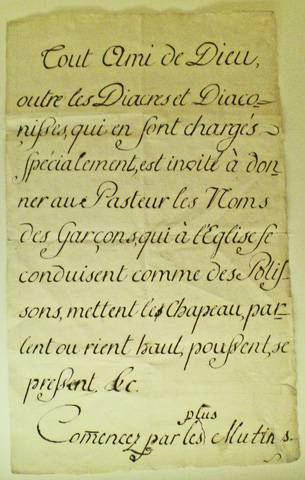 Tout Ami de Dieu,
outre les Diacres et Diaco-
nisses, qui en sont chargés
spécialement, est invité à don-
ner au Pasteur les Noms
des Garçons, qui à l'Eglise se
conduisent comme des Polis-
sons, mettent les Chapeau, par-
lent ou rient haut, poussent, se
pressent &c.
plus
Comencez par les Mutins.